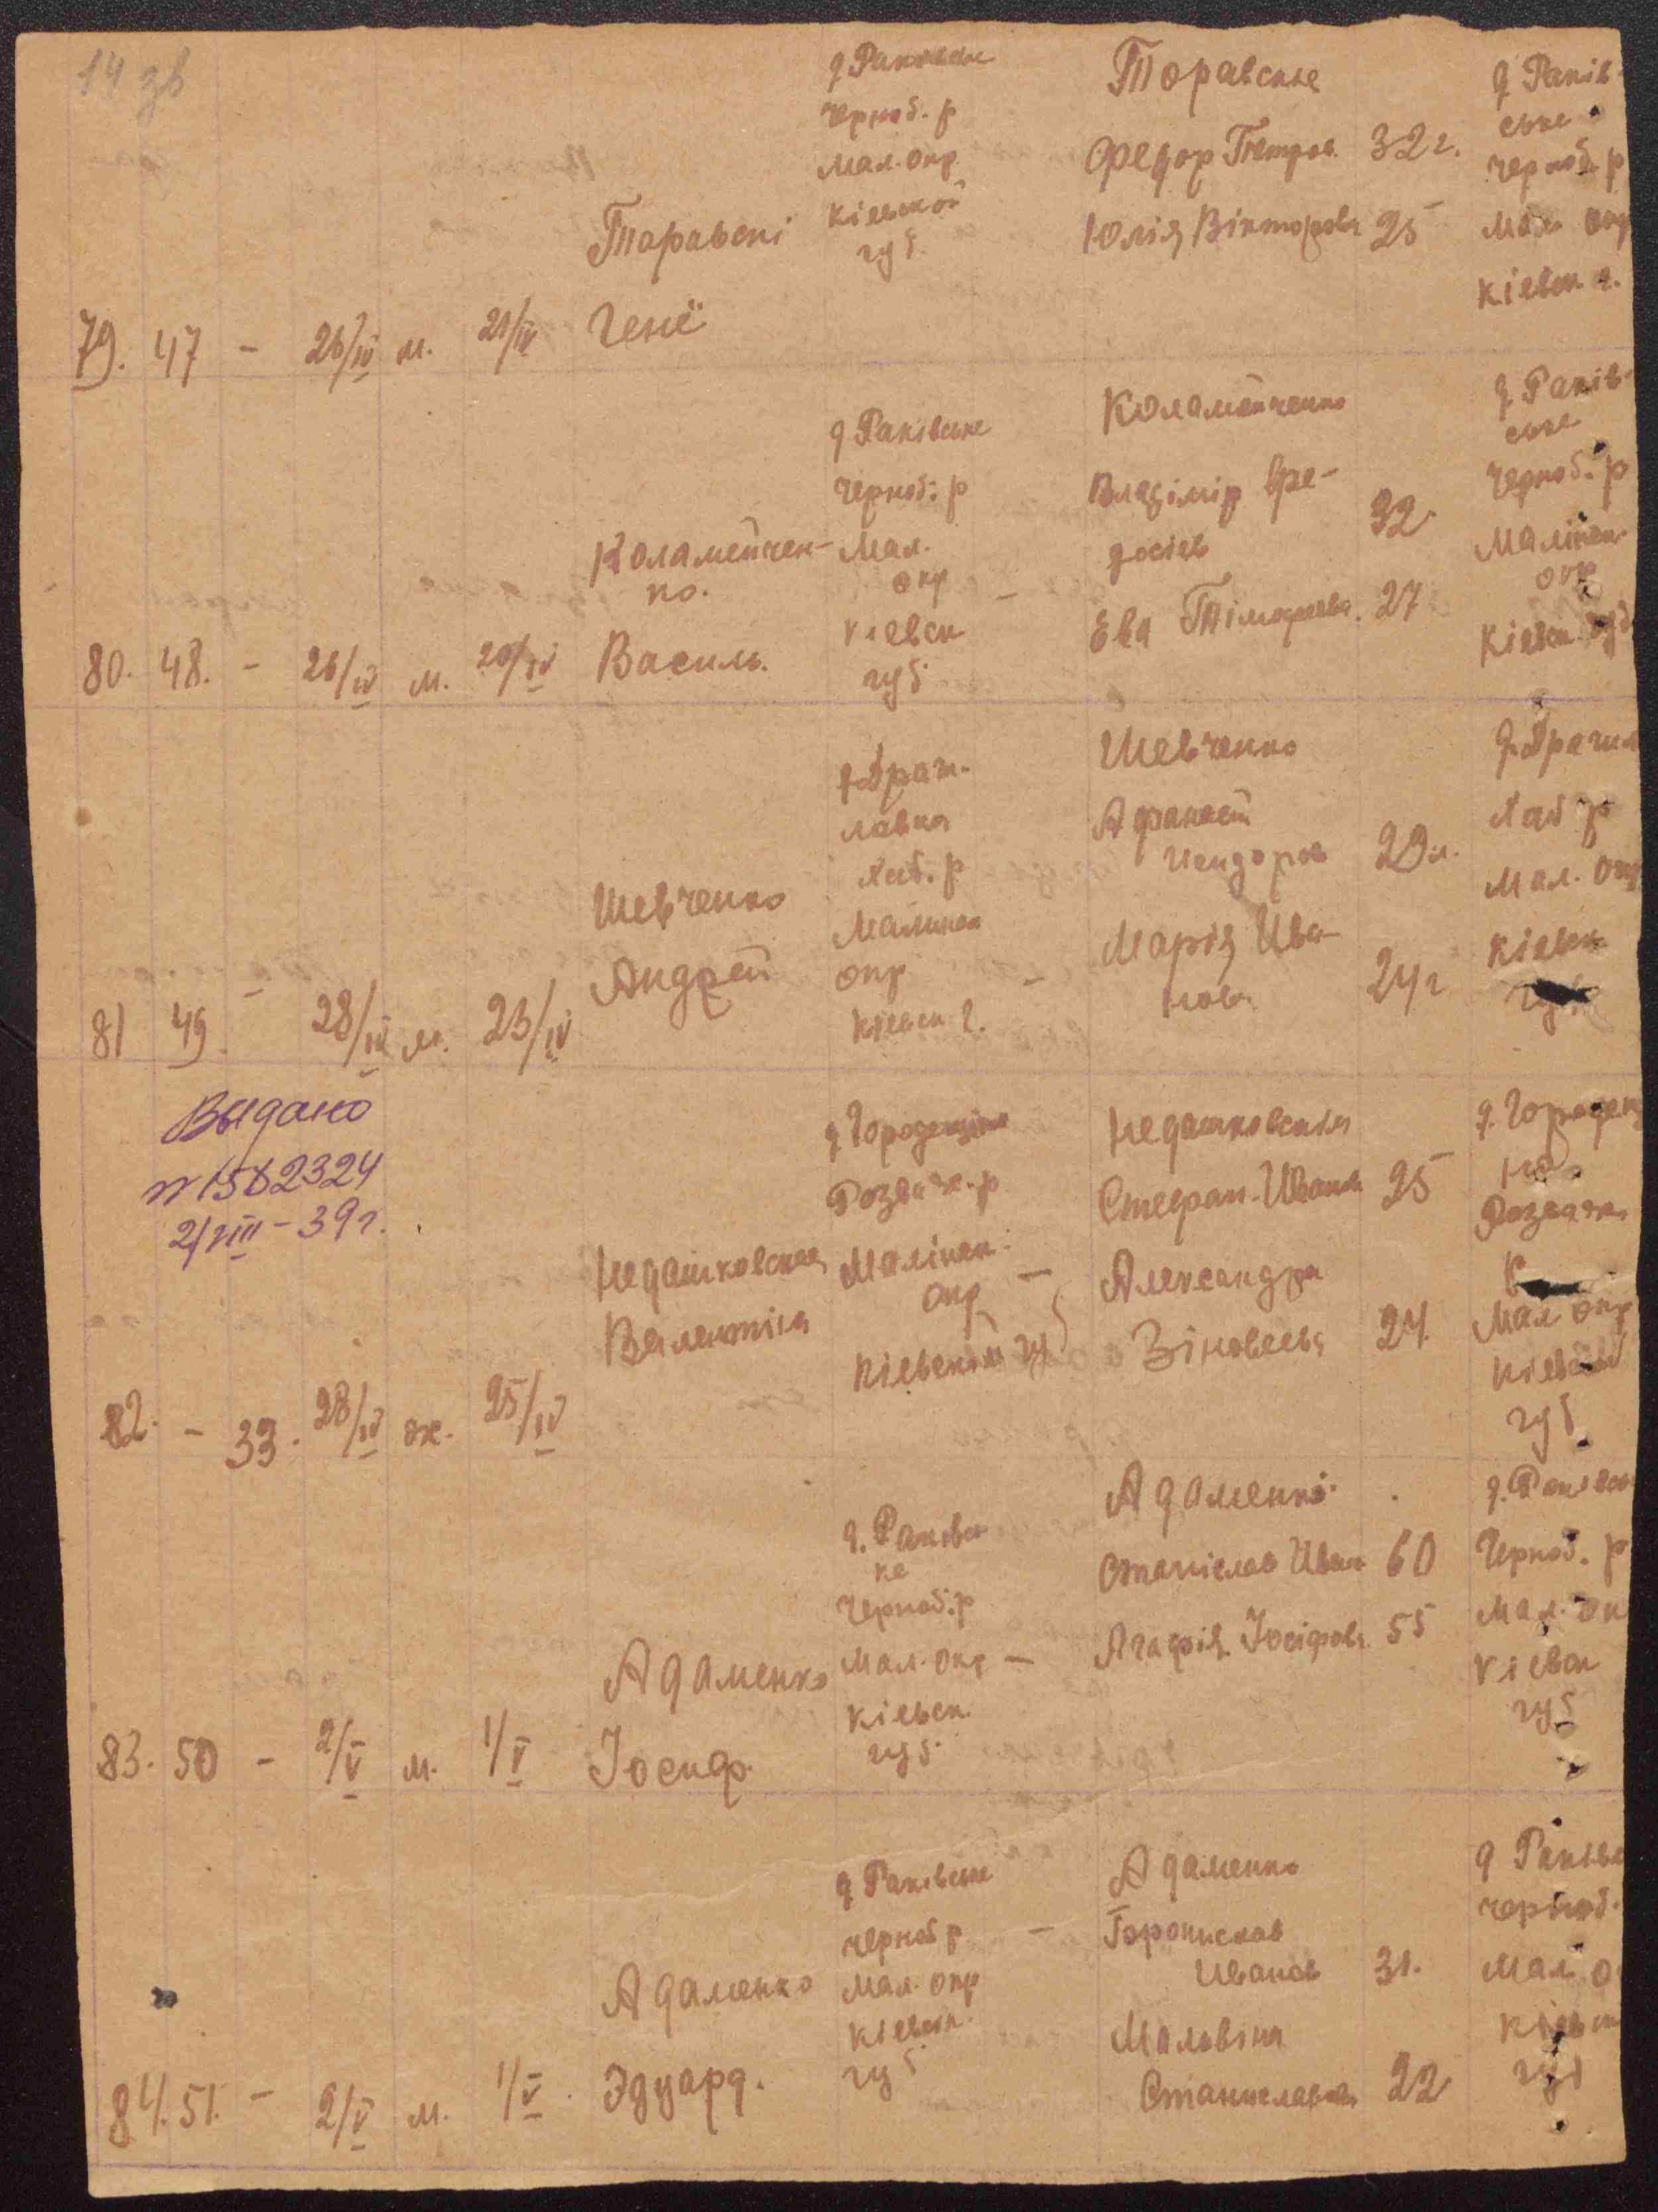 14 зв
79. 47 - 26/IV м. 21/IV
Таравскі
Генё
д Раківське
Черноб. р
Мал. окр
Кіевской
губ.
Таравские
Федор Петров. 32 г.
Юлія Вікторова 25
д Раків-
ське
черноб. р
Мал. окр
Кіевск. г.
80. 48. - 26/IV м. 20/IV
Коламейчен-
ко.
Василь.
д Раківське
Черноб. р
Мал.
окр
Кіевск
губ.
-
Коламейченко
Владімір Фе-
досіев 32
Ева Тімофеева. 27
д Раків-
ське
Черноб. р
Малінск.
окр
Кіевск. губ
81 49. - 28/IV м. 23/IV
Шевченко
Андрей
лавка
Хаб. р
Малинск
окр
Кіевск г.
-
Шевченко
Афанасій
29 л.
Марія Ива-
нова 24 г
Хаб р
Мал. окр
Кіевск
губ
Выдано
2/VIII - 39 г.
82. - 33. 28/IV ж. 25/IV
Недашковская
Валентіна
д Городещина
Розваж. р
Малінск.
окр
Кіевской губ
-
Недашковскія
Стефан Иванов 25
Александра
Зіновьева 24.
д. Городещ
на
Розваж.
Мал окр
Кіевской
губ.
83. 50 - 2/V м. 1/V
Адаменко
Іосиф.
д. Раківсь
ке
Черноб. р
Мал. окр -
Кіевск.
губ.
Адаменкі.
Станіслав Иван 60
Агафія Іосіфова 55
д. Раківсь
Черноб. р
Мал. ок
Кіевск
губ
84. 51. - 2/V м. 1/V.
Адаменко
Эдуард.
д Раківське
черноб р -
Мал. окр
Кіевск.
губ.
Адаменко
Иванов 31.
Мальвіна
Станиславова 22
д Раківс
черноб.
Мал. о
Кіевск
губ